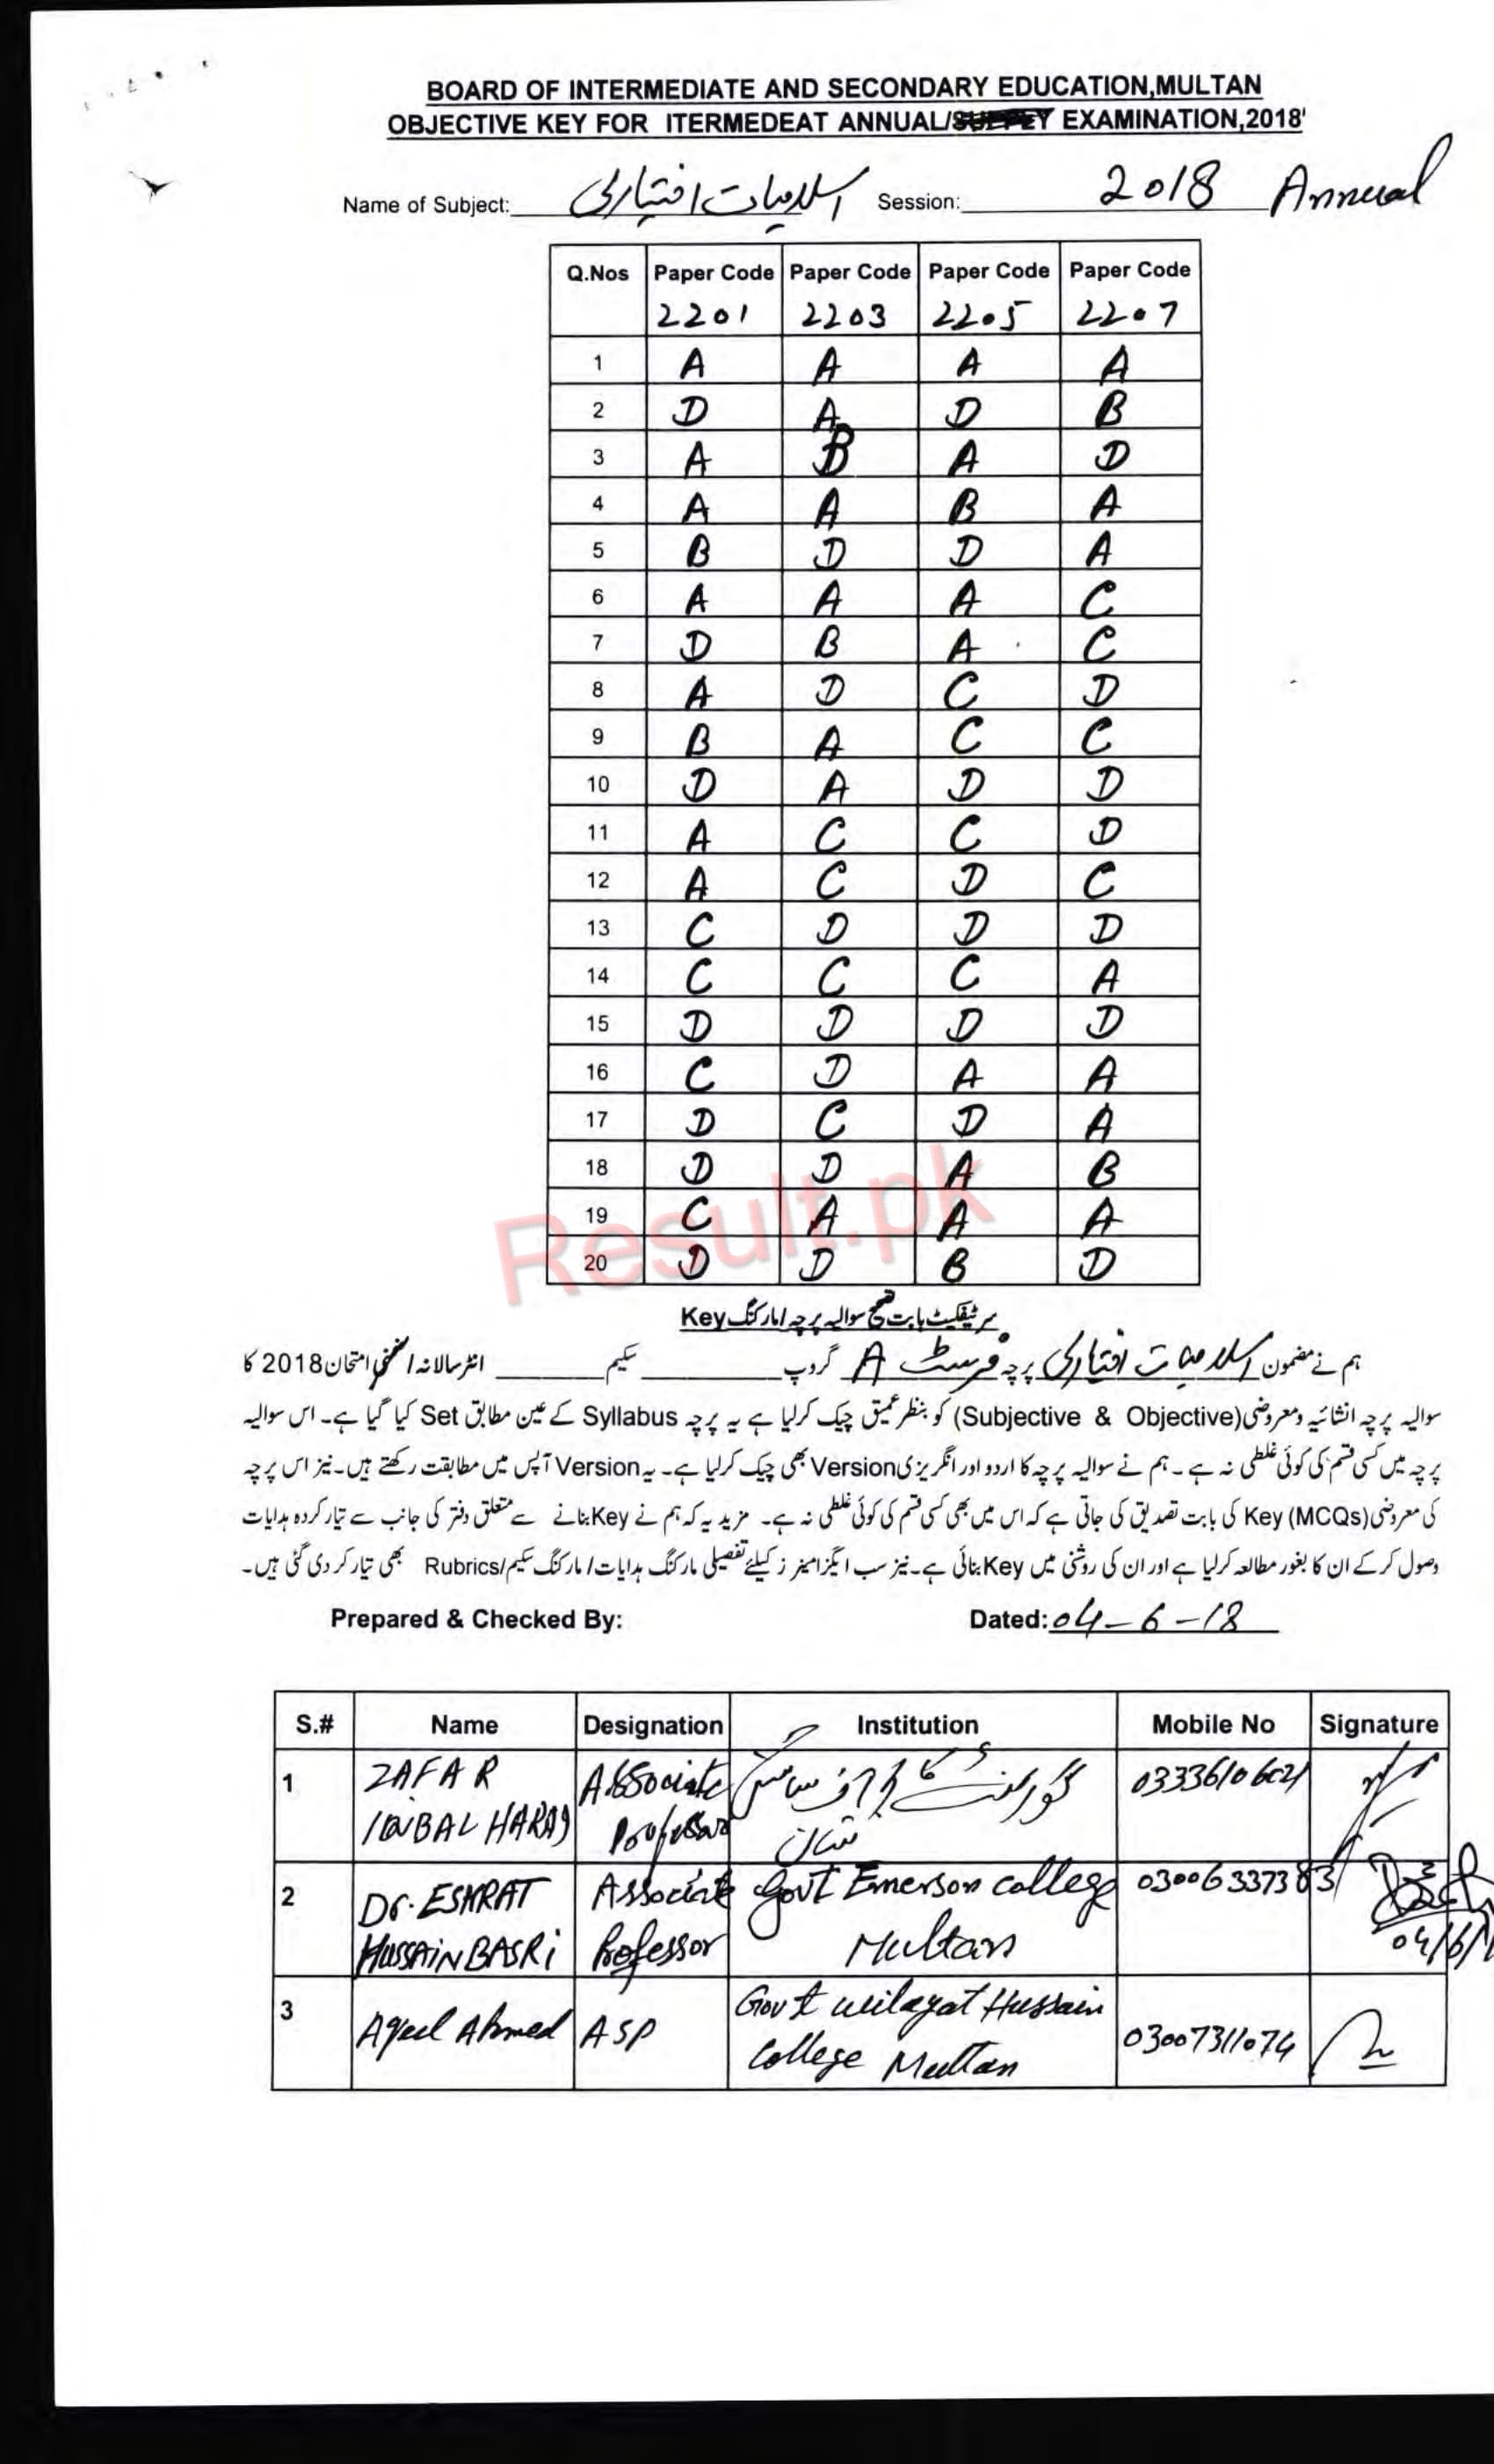 BOARD OF INTERMEDIATE AND SECONDARY EDUCATION,MULTAN
OBJECTIVE KEY FOR ITERMEDEAT ANNUAL/SUPPLY EXAMINATION,2018'
Name of Subject: اسلامیات اختیاری Session: 2018 Annual
Q.Nos Paper Code Paper Code Paper Code Paper Code
2201 2203 2205 2207
1 A A A A
2 D A D B
3 A B A D
4 A A B A
5 B D D A
6 A A A C
7 D B A C
8 A D C D
9 B A C C
10 D A D D
11 A C C D
12 A C D C
13 C D D D
14 C C C A
15 D D D D
16 C D A A
17 D C D A
18 D D A B
19 C A A A
20 D D B D
Result.pk
سرٹیفکیٹ بابت تصحیح سوالیہ پرچہ / مارکنگ Key
ہم نے مضمون اسلامیات اختیاری پرچہ فرسٹ A گروپ سکیم انٹر سالانہ / ضمنی امتحان 2018 کا
سوالیہ پرچہ انشائیہ ومعروضی (Subjective & Objective) کو بنظر عمیق چیک کرلیا ہے یہ پرچہ Syllabus کے عین مطابق Set کیا گیا ہے۔ اس سوالیہ
پرچہ میں کسی قسم کی کوئی غلطی نہ ہے ۔ ہم نے سوالیہ پرچہ کا اردو اور انگریزی Version بھی چیک کرلیا ہے۔ یہ Version آپس میں مطابقت رکھتے ہیں۔ نیز اس پرچہ
کی معروضی (MCQs) Key کی بابت تصدیق کی جاتی ہے کہ اس میں بھی کسی قسم کی کوئی غلطی نہ ہے۔ مزید یہ کہ ہم نے Key بنانے سے متعلق دفتر کی جانب سے تیار کردہ ہدایات
وصول کر کے ان کا بغور مطالعہ کرلیا ہے اور ان کی روشنی میں Key بنائی ہے۔ نیز سب ایگزامینرز کیلئے تفصیلی مارکنگ ہدایات / مارکنگ سکیم /Rubrics بھی تیار کر دی گئی ہیں۔
Prepared & Checked By: Dated: 04-6-18
S.# Name Designation Institution Mobile No Signature
1 ZAFAR IQBAL HARAJ Associate Professor گورنمنٹ کالج آف سائنس ملتان
2 Dr. ESHRAT HUSSAIN BASRi Associate Professor Govt Emerson college Multan 03006337383
04/6/
3 Aqeel Ahmed ASP Govt wilayat Hussain College Multan 03007311074